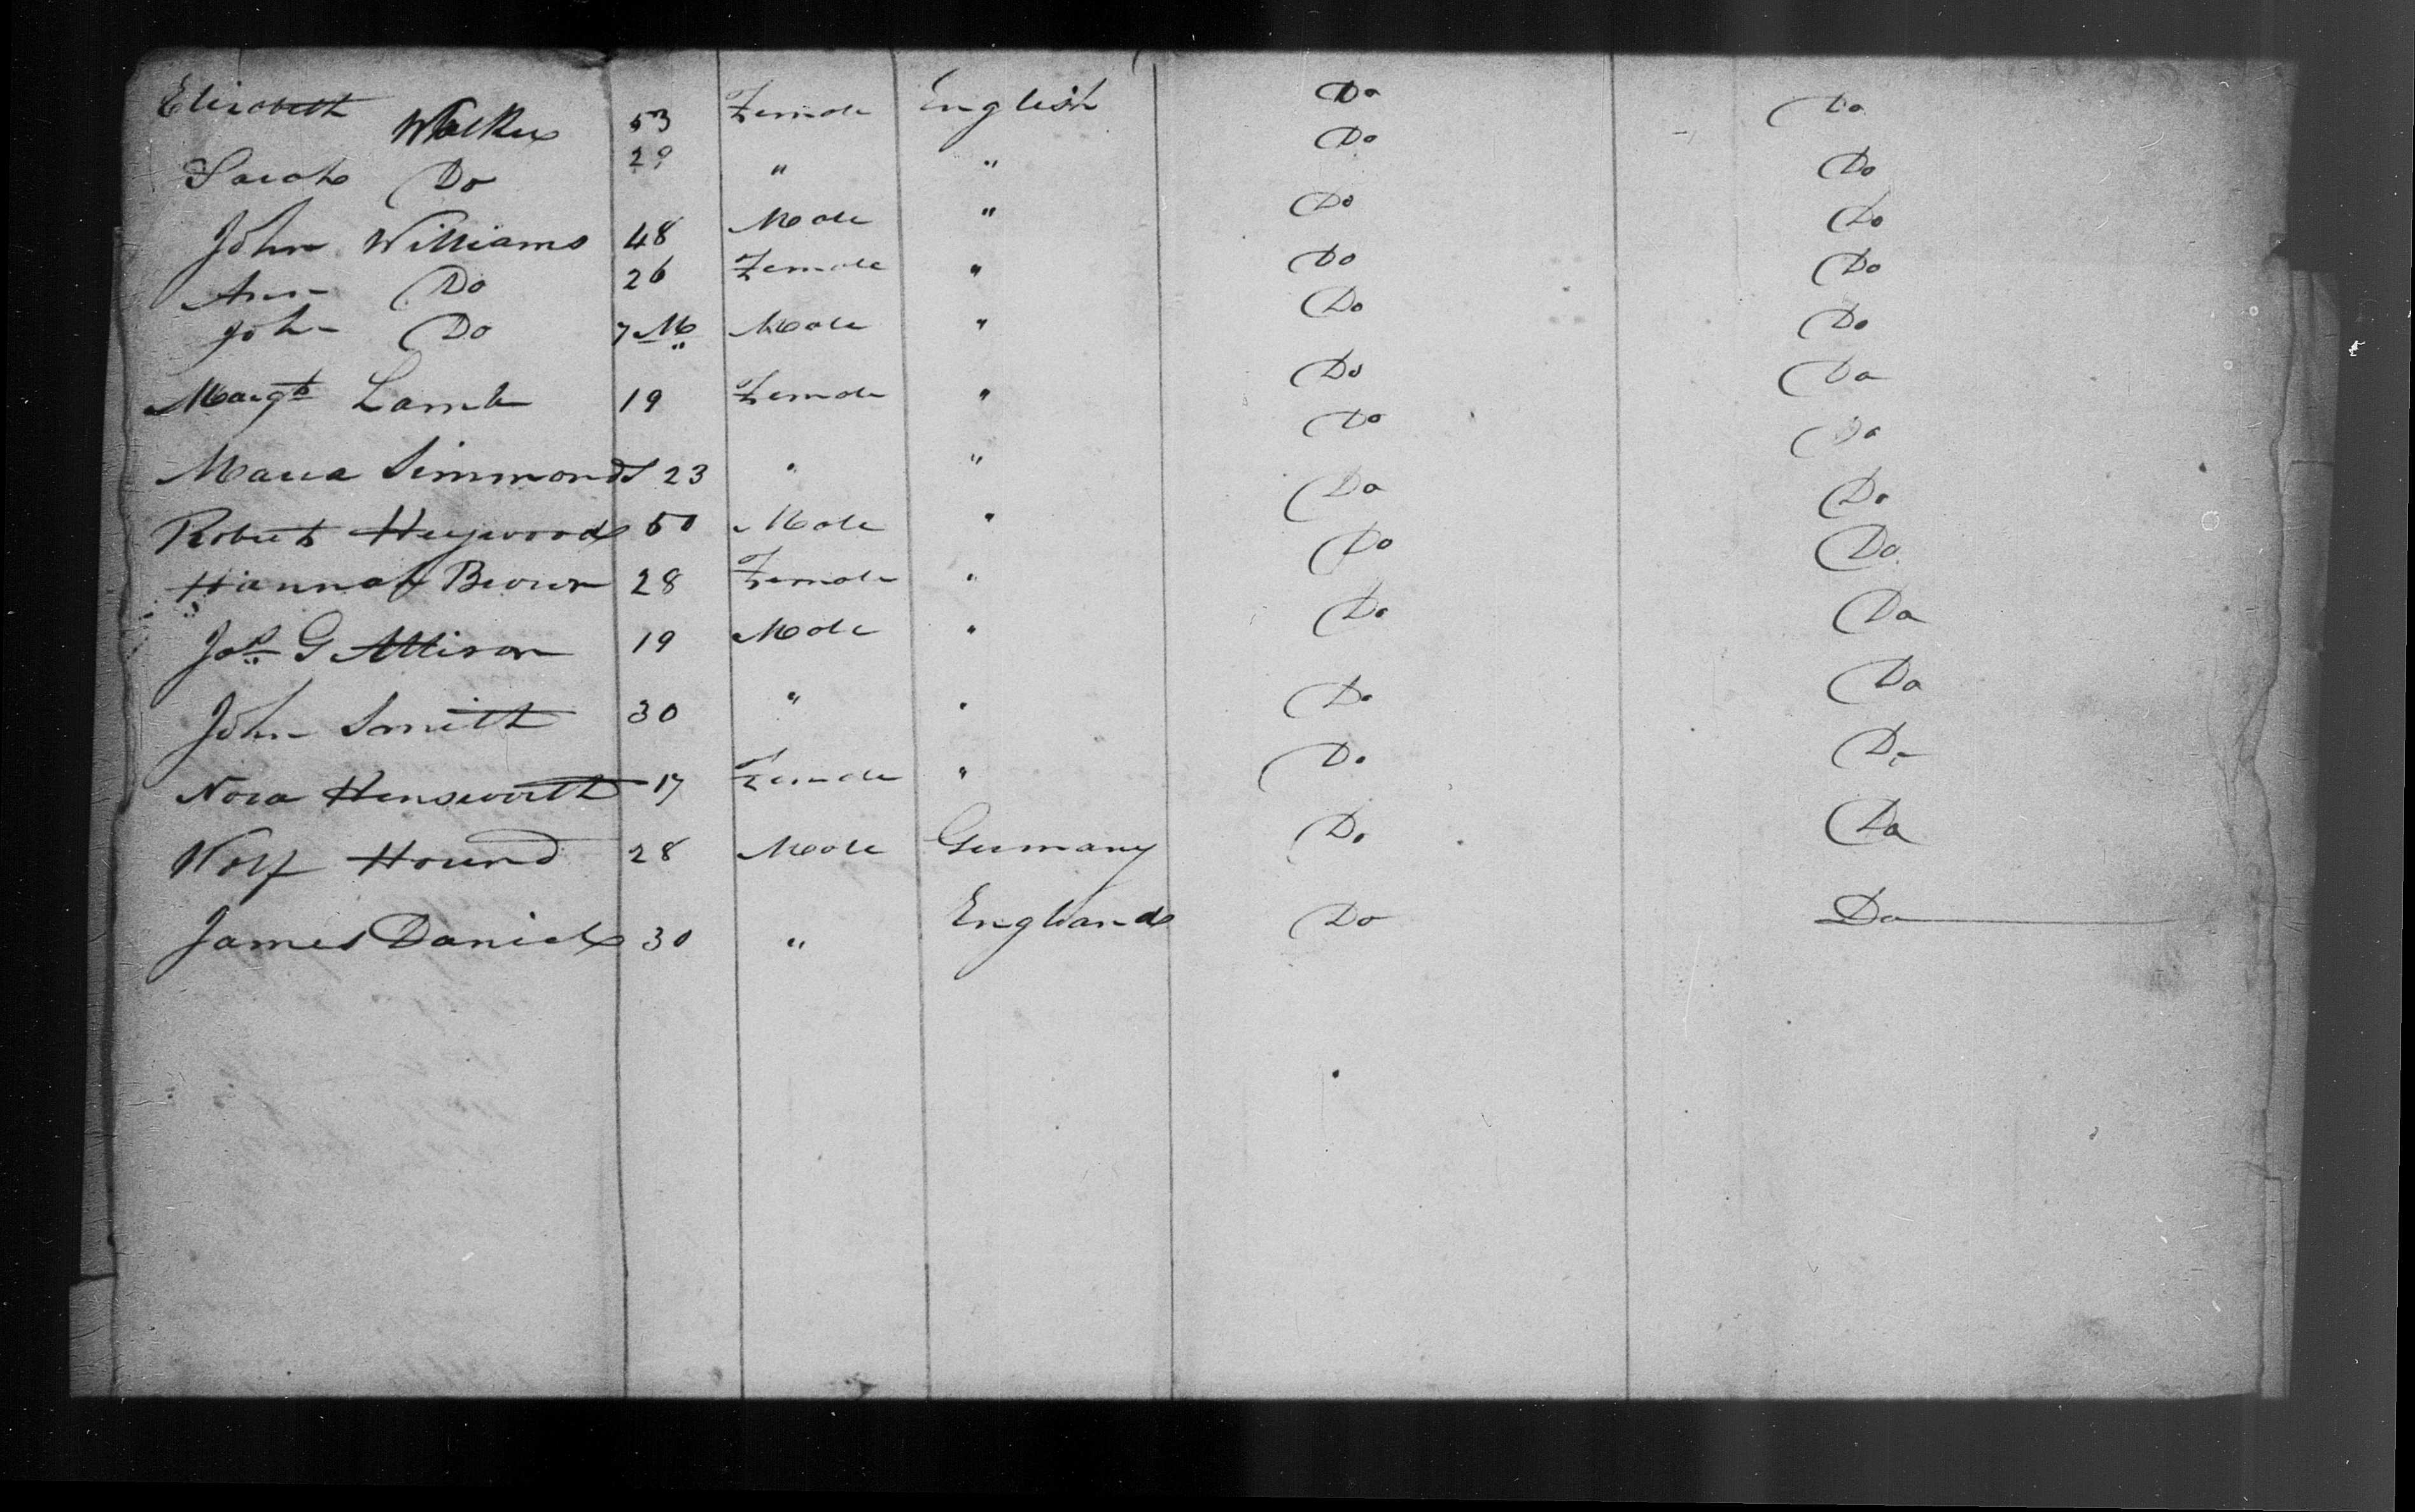 Elizabeth Walker 53 Female English Do Do
Sarah Do 29 " " Do Do
John Williams 48 Male " Do Do
Ann Do 26 Female " Do Do
John Do 7 M Male " Do Do
Margt Lamb 19 Female " Do Do
Maria Simmonds 23 " " Do Do
Robert Heywood 50 Male " Do Do
Hannah Brown 28 Female " Do Do
Jos G Allison 19 Male " Do Do
John Smith 30 " " Do Do
Nora Hensworth 17 Female " Do Do
Wolf Hound 28 Male Germany Do Do
James Daniel 30 " England Do Do